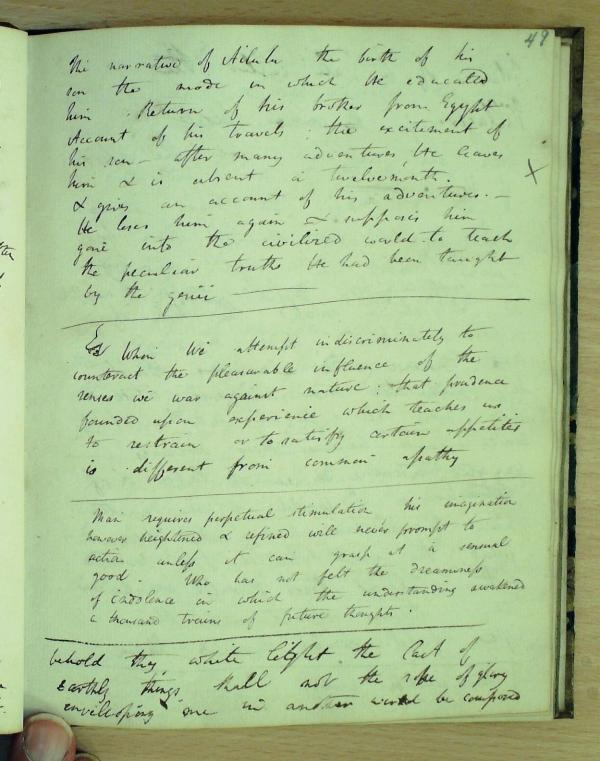 49
The narrative of Adulu the birth of his
son the mode in which He educated
him. Return of his brother from Egypt
Account of his travels: the excitement of
his son - after many adventures, He leaves
him & is absent a twelvemonth.
X
& gives an account of his adventures. -
He loses him again & supposes him
gone into the civilized world to teach
the peculiar truths He had been taught
by the genii
When We attempt indiscriminately to
counteract the pleasurable influence of the
senses we war against nature: that prudence
founded upon experience which teaches us
to restrain or to satisfy certain appetites
is different from common apathy
Man requires perpetual stimulation his imagination
however heightened & refined will never prompt to
action unless it can grasp at a sensual
good. Who has not felt the dreaminess
of indolence in which the understanding awakened
a thousand trains of future thoughts.
behold thy white light the last of
Earthly things shall not the robe of glory
enveloping me in another world be composed